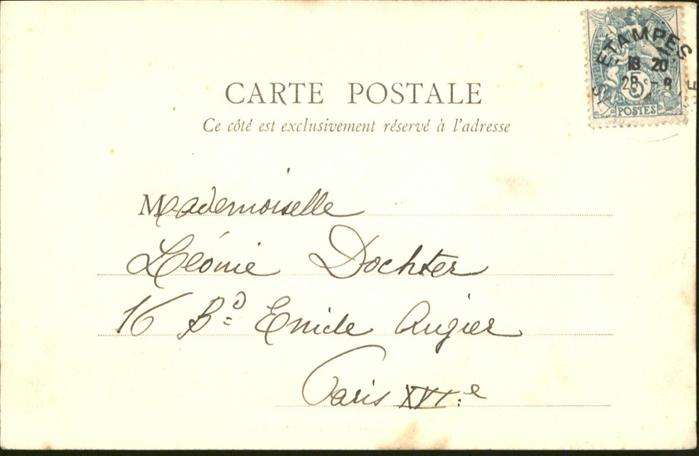 ETAMPES
18 20
5
25 9
POSTES
CARTE POSTALE
Ce côté est exclusivement réservé à l'adresse
Mademoiselle
Léonie Dochter
16 Bd Emile Augier
Paris XVIe